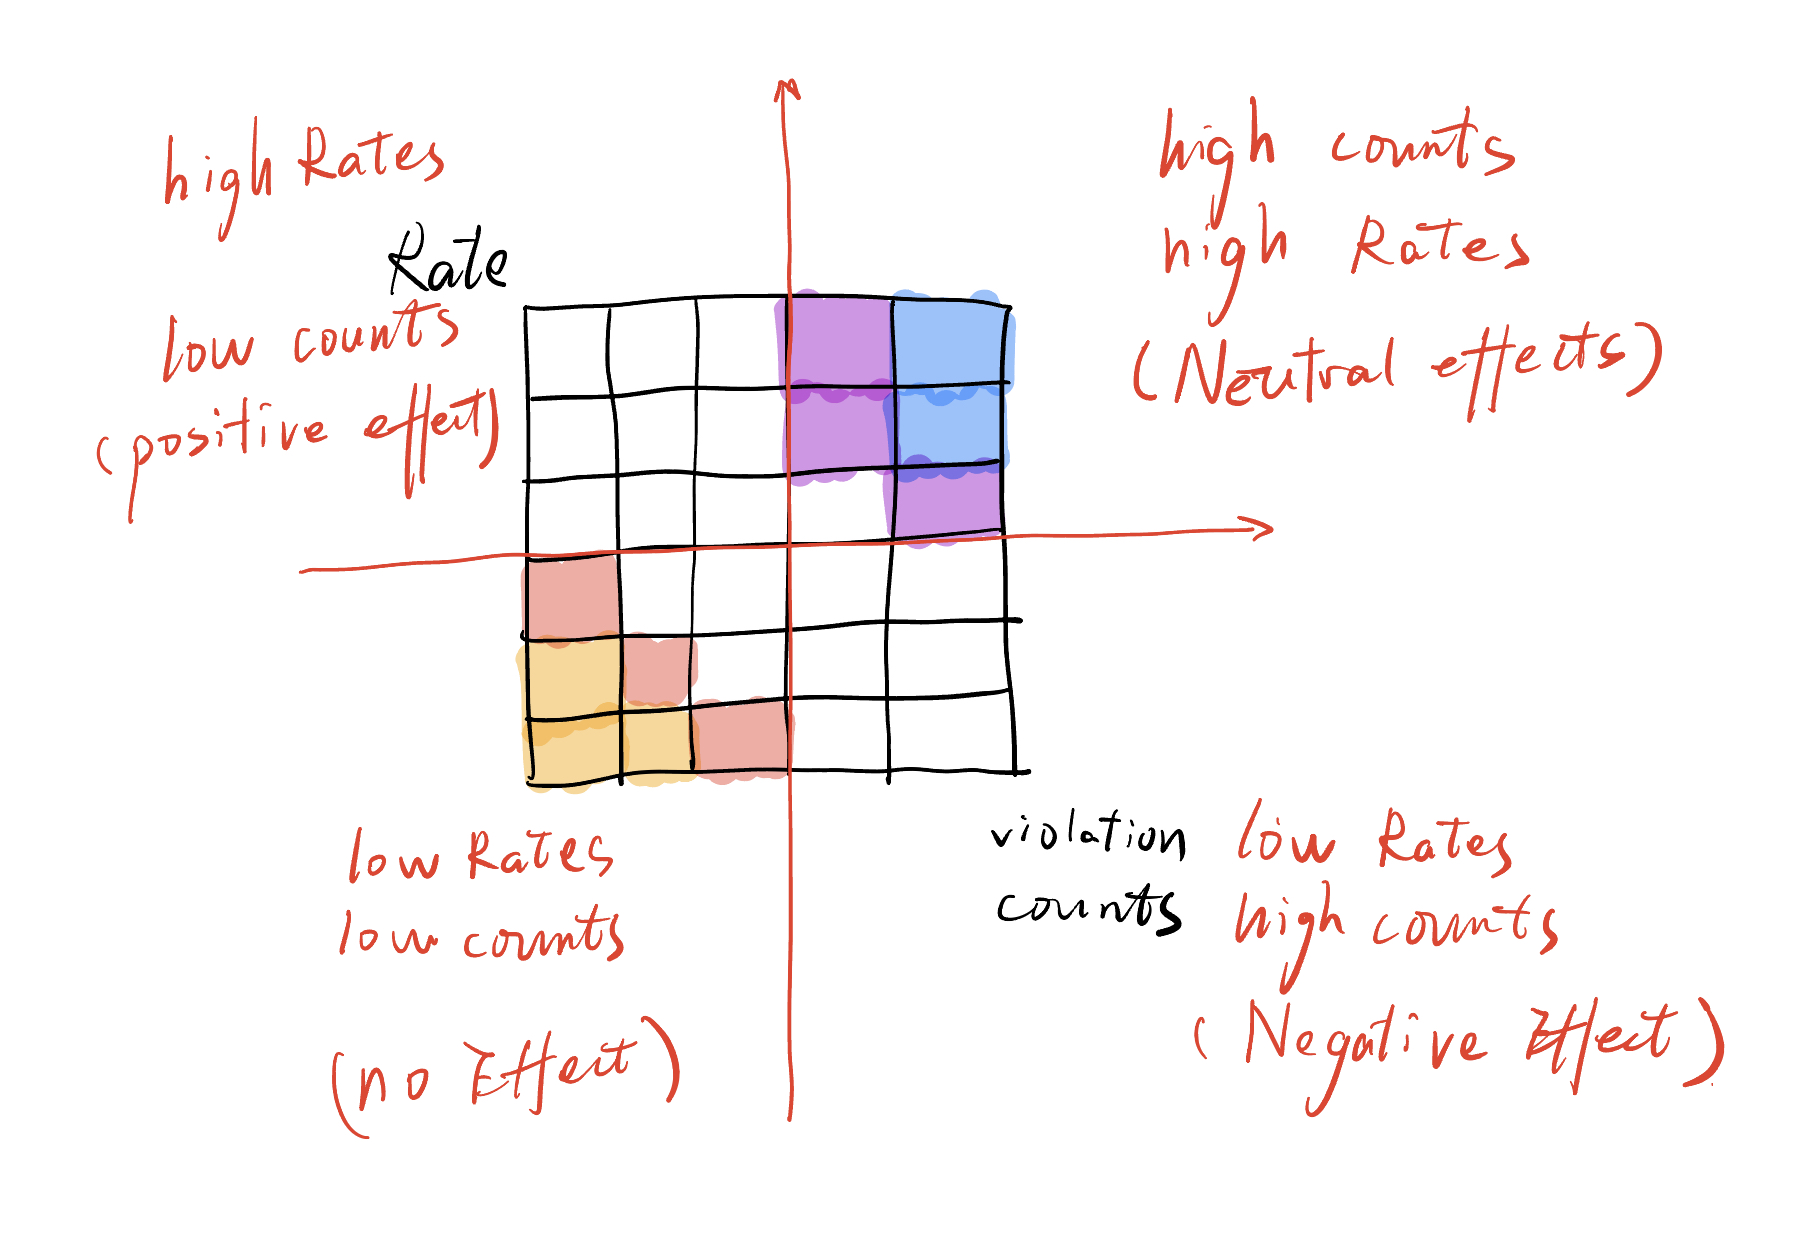 high Rates
Rate
low counts
(positive effect)
high counts
high Rates
(Neutral effects)
low Rates
low counts
(no Effect)
violation
counts
low Rates
high counts
(Negative Effect)